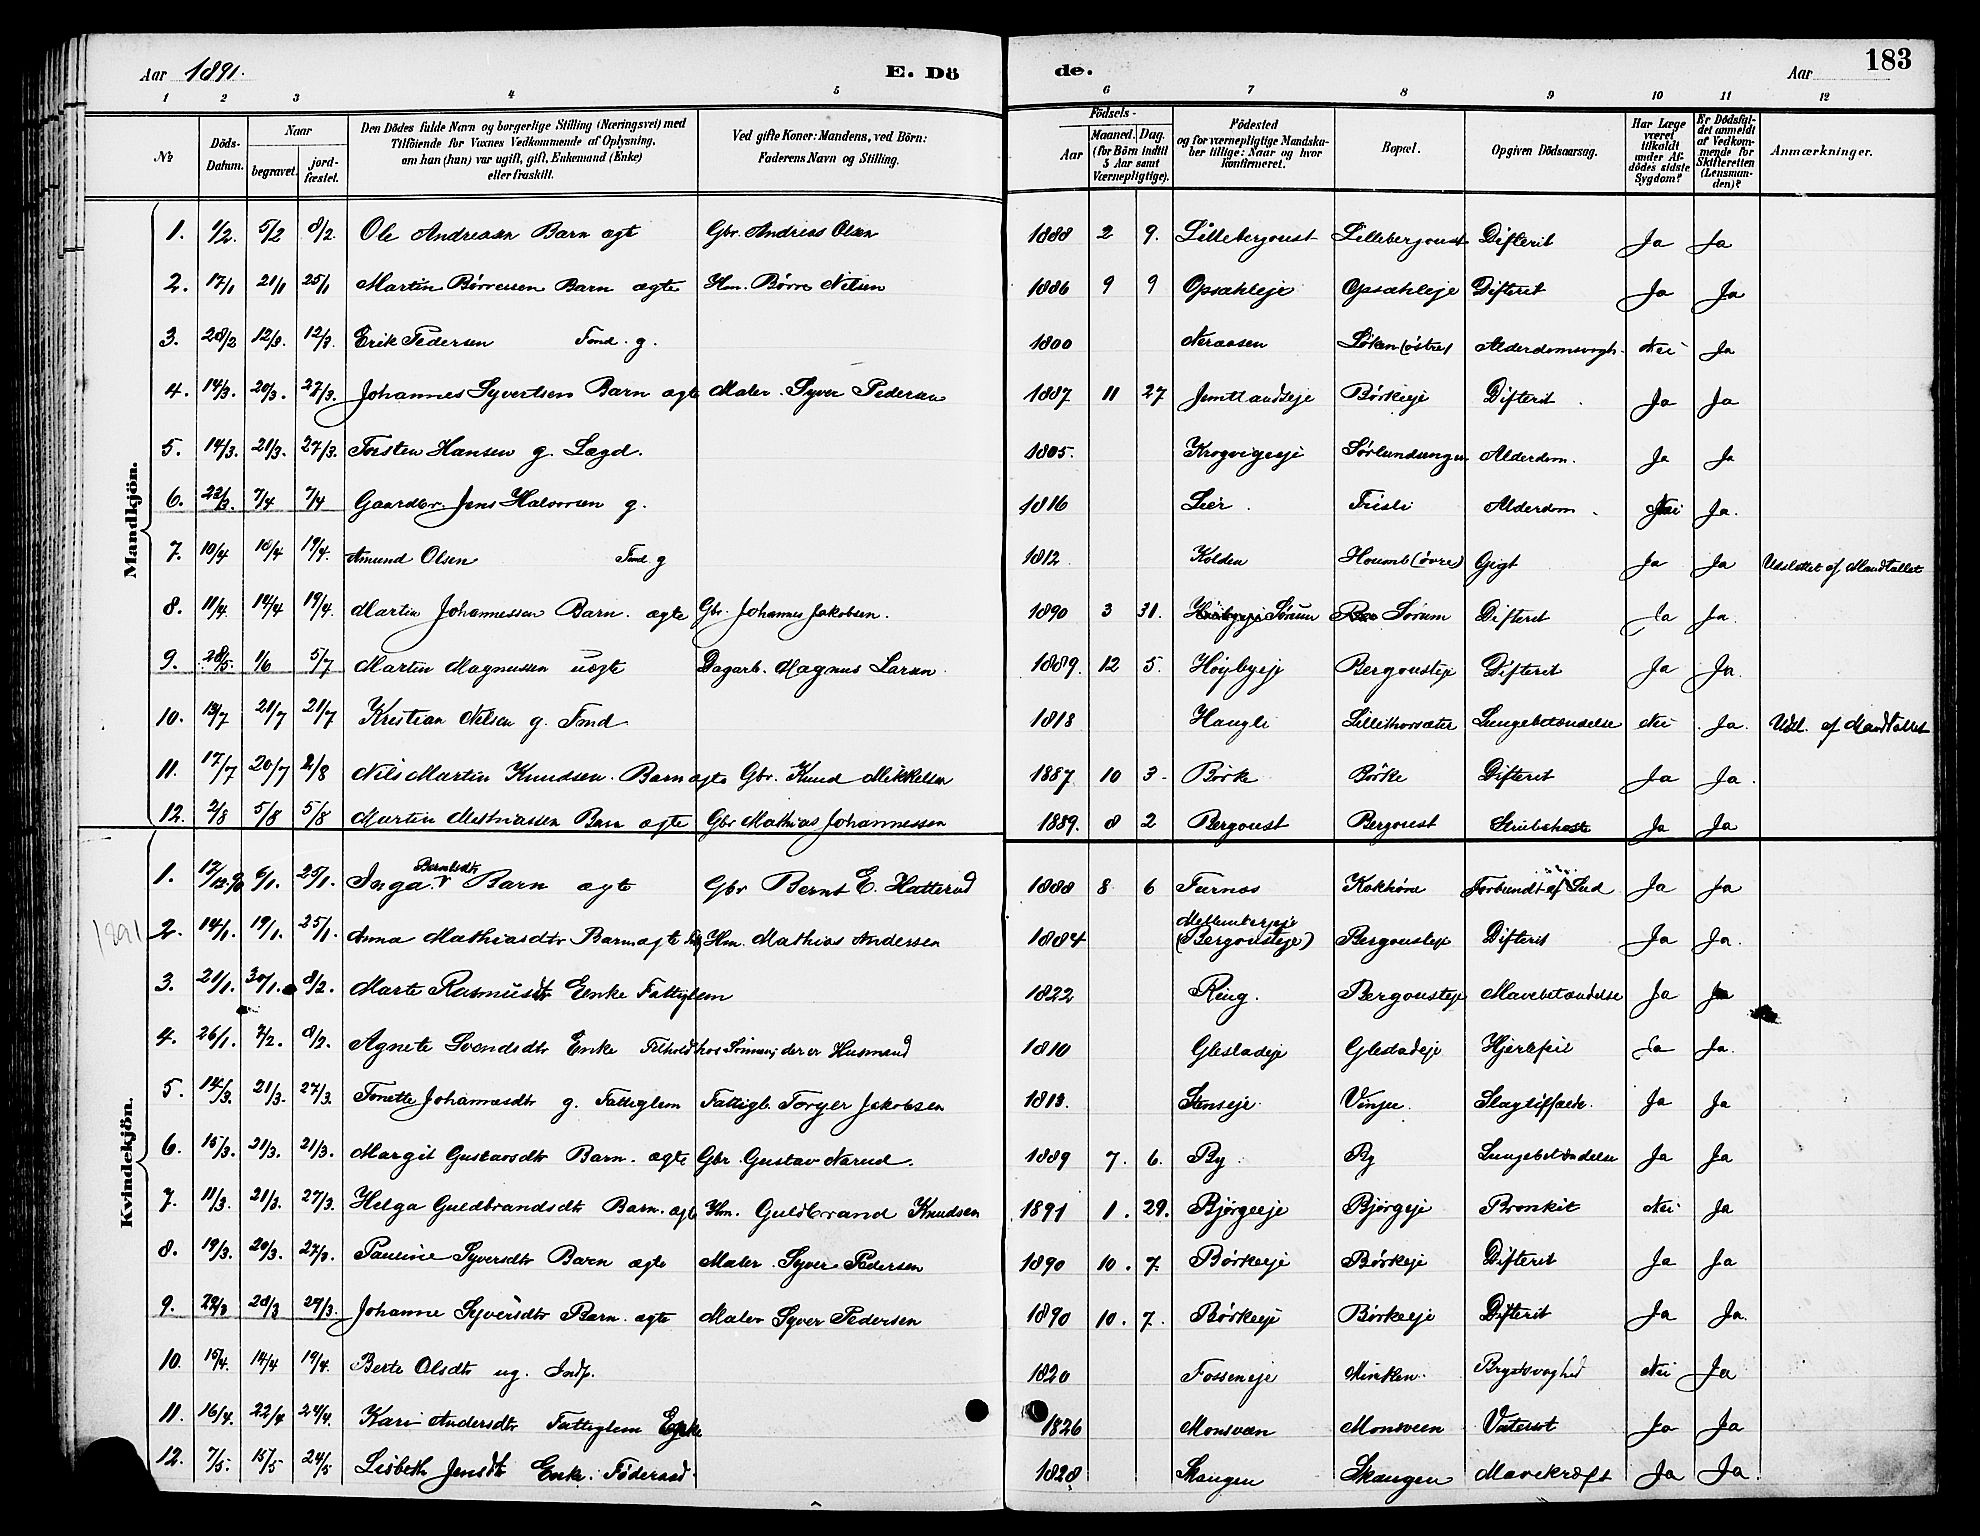 Aar 1891. E. Dö de. Aar 183
1 2 3 4 5 6 7 8 9 10 11 12
№ Döds-Datum. Naar begravet. jord-fæstet. Den Dödes fulde Navn og borgerlige Stilling (Næringsvei) med Tilföiende for Voxnes Vedkommende af Oplysning, om han (hun) var ugift, gift, Enkemand (Enke) eller fraskilt. Ved gifte Koner: Mandens, ved Börn: Faderens Navn og Stilling. Födsels- Aar Maaned. Dag. (for Börn indtil 5 Aar samt Værnepligtige). Födested og for værnepligtige Mandskaber tillige: Naar og hvor konfirmeret. Bopæl. Opgiven Dödsaarsag. Har Læge været tilkaldt under Afdödes sidste Sygdom? Er Dödsfaldet anmeldt af Vedkommende for Skifteretten (Lensmanden)? Anmærkninger.
Mandkjön.
1. 1/2. 5/2 8/2. Ole Andreasen Barn ægt Gbr. Andreas Olsen 1888 2 9. Lillebergoust Lillebergoust Difterit Ja Ja
2. 17/1 21/1 25/1 Martin Børresen Barn ægte Hm. Børre Nilsen 1886 9 9 Opsahleje Opsahleje Difterit Ja Ja
3. 28/2 12/3. 12/3. Erik Pedersen Fmd. g. 1800 Neraasen Løken (østre) Alderdomsvagh. Nei Ja
4. 14/3. 20/3. 27/3. Johannes Syvertsen Barn ægte Maler Syver Pedersen 1887 11 27 Jemtlandseje Børkeeje Difterit Ja Ja
5. 14/3. 21/3. 27/3. Torsten Hansen g. Lægd. 1805. Krogvigeje Sørlundsengen Alderdom. Ja Ja
6. 22/3. 7/4 7/4 Gaardbr. Jens Halvorsen g. 1816 Lier. Frisli Alderdom Nei Ja.
7. 10/4 18/4 19/4. Amund Olsen Fmd. g 1812 Kolden Houmb (øvre) Gigt Ja Ja Udslettet af Mandtallet
8. 11/4. 14/4 19/4. Martin Johannessen Barn. ægte Gbr. Johannes Jakobsen. 1890 3 31. Sørum Sørum Difterit Ja Ja.
9. 28/5. 1/6 5/7 Martin Magnussen uægte Dagarb. Magnus Larsen. 1889. 12 5. Høybyeje Bergousteje Difterit Ja Ja.
10. 13/7 21/7 21/7 Kristian Nilsen g. Fmd 1818 Haugli Lillethorsæter Lungebetændelse Nei Ja. Udsl. af Mandtallet
11. 17/7 20/7 2/8 Nils Martin Knudsen. Barn ægte Gbr. Knud Mikkelsen 1887 10 3. Børke Børke Difterit Ja Ja.
12. 2/8 5/8 5/8 Martin Mathiassen Barn ægte Gbr Mathias Johannessen 1889. 8 2 Bergoust Bergoust Strubehoste Ja Ja
Kvindekjön.
1. 17/12 90 6/1. 25/1. Inga Berntsdtr Barn ægte Gbr Bernt E. Hatterud 1888 8 6 Furnes Kokhøra Forbrændt af Lud Ja Ja
1891 2. 14/1. 19/1. 25/1. Anna Mathiasdtr Barn ægte Hm. Mathias Andersen 1884 Mellembyeje (Bergousteje) Bergousteje Difterit Ja Ja.
3. 21/1. 30/1. 8/2. Marte Rasmusdtr Enke Fattiglem 1822 Ring. Bergousteje Mavebetændelse Ja Ja
4. 26/1. 7/2. 8/2. Agnete Svendsdtr Enke Tilhold hos Sønnen, der er Husmand 1810 Glestadeje Glestadeje Hjertefeil Ja Ja.
5. 14/3. 21/3. 27/3. Tonette Johannesdtr g. Fattiglem Fattigl. Torger Jakobsen 1813. Stenseje. Vinju. Slagtilfælde. Ja Ja
6. 15/3. 21/3. 21/3. Margit Gustavsdtr Barn. ægte Gbr. Gustav Narud. 1889 7. 6. By. By Lungebetændelse Ja Ja
7. 11/3. 21/3. 27/3. Helga Guldbrandsdtr Barn. ægte Hm. Guldbrand Knudsen 1891 1. 29. Bjørgeeje Bjørgeje Bronkit Nei Ja
8. 19/3. 20/3. 27/3. Pauline Syversdtr Barn ægte Maler. Syver Pedersen 1890 10. 7. Børkeeje Børkeje Difterit Ja Ja
9. 22/3 28/3 27/3. Johanne Syversdtr Barn. ægte Maler Syver Pedersen 1890 10. 7. Børkeeje Børkeeje Difterit Ja Ja.
10. 15/4. 14/4 19/4. Berte Olsdtr ug. Inds. 1820 Fosseneje Mireklen. Brystsvaghed Nei Ja
11. 16/4. 22/4 24/4. Kari Andersdtr Fattiglem Enke 1826 Monsveen Monsveen Vatersot Ja Ja
12. 7/5. 15/5 24/5 Lisbeth Jensdtr Enke. Føderaad. 1828 Skaugen Skaugen Mavekræft Ja Ja.